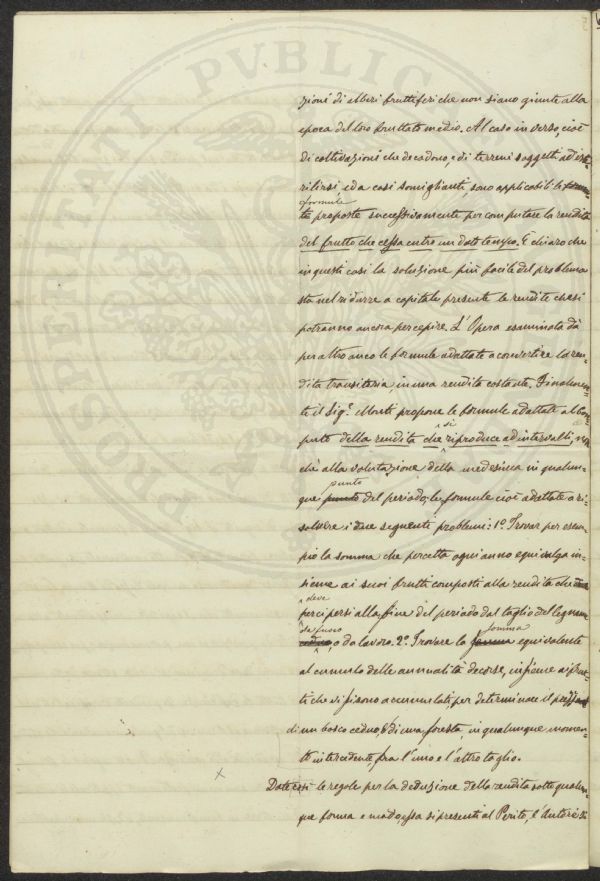 PROSPERITATI PVBLICAE
zioni di alberi fruttiferi che non siano giunte alla
epoca del loro fruttato medio. Al caso inverso, cioè
di coltivazioni che decadono, e di terreni soggetti ad iste=
rilirsi, ed a casi somiglianti, sono applicabili le
formule
te proposte successivamente per computare la rendita
del frutto che cessa entro un dato tempo. È chiaro che
in questi casi la soluzione più facile del problema
sta nel ridurre a capitale presente le rendite che si
potranno ancora percepire. L'Opera esaminata dà
per altro anco le formule adattate a convertire la ren=
dita transitoria, in una rendita costante. Finalmen=
te il Sig.e Monti propone le formule adattate al com=
si
puto della rendita che riproduce ad intervalli, non
chè alla valutazione della medesima in qualun=
punto
que punto del periodo; le formule cioè adattate a ri=
solvere i due seguenti problemi: 1.o Trovar per esem=
pio la somma che percetta ogni anno equivalga in=
sieme ai suoi frutti composti alla rendita che
deve
percipersi alla fine del periodo dal taglio del legname
da fuoco
ceduo o da lavoro. 2.o Trovare la equivalente
somma
al cumulo delle annualità decorse, insieme ai frut=
ti che vi fissono accumulati, per determinare il prezzo
di un bosco ceduo, o di una foresta, in qualunque momen=
to intercedente fra l'uno e l'altro taglio.
Date così le regole per la deduzione della rendita sotto qualun=
que forma e modo essa si presenti al Perito, l'Autore